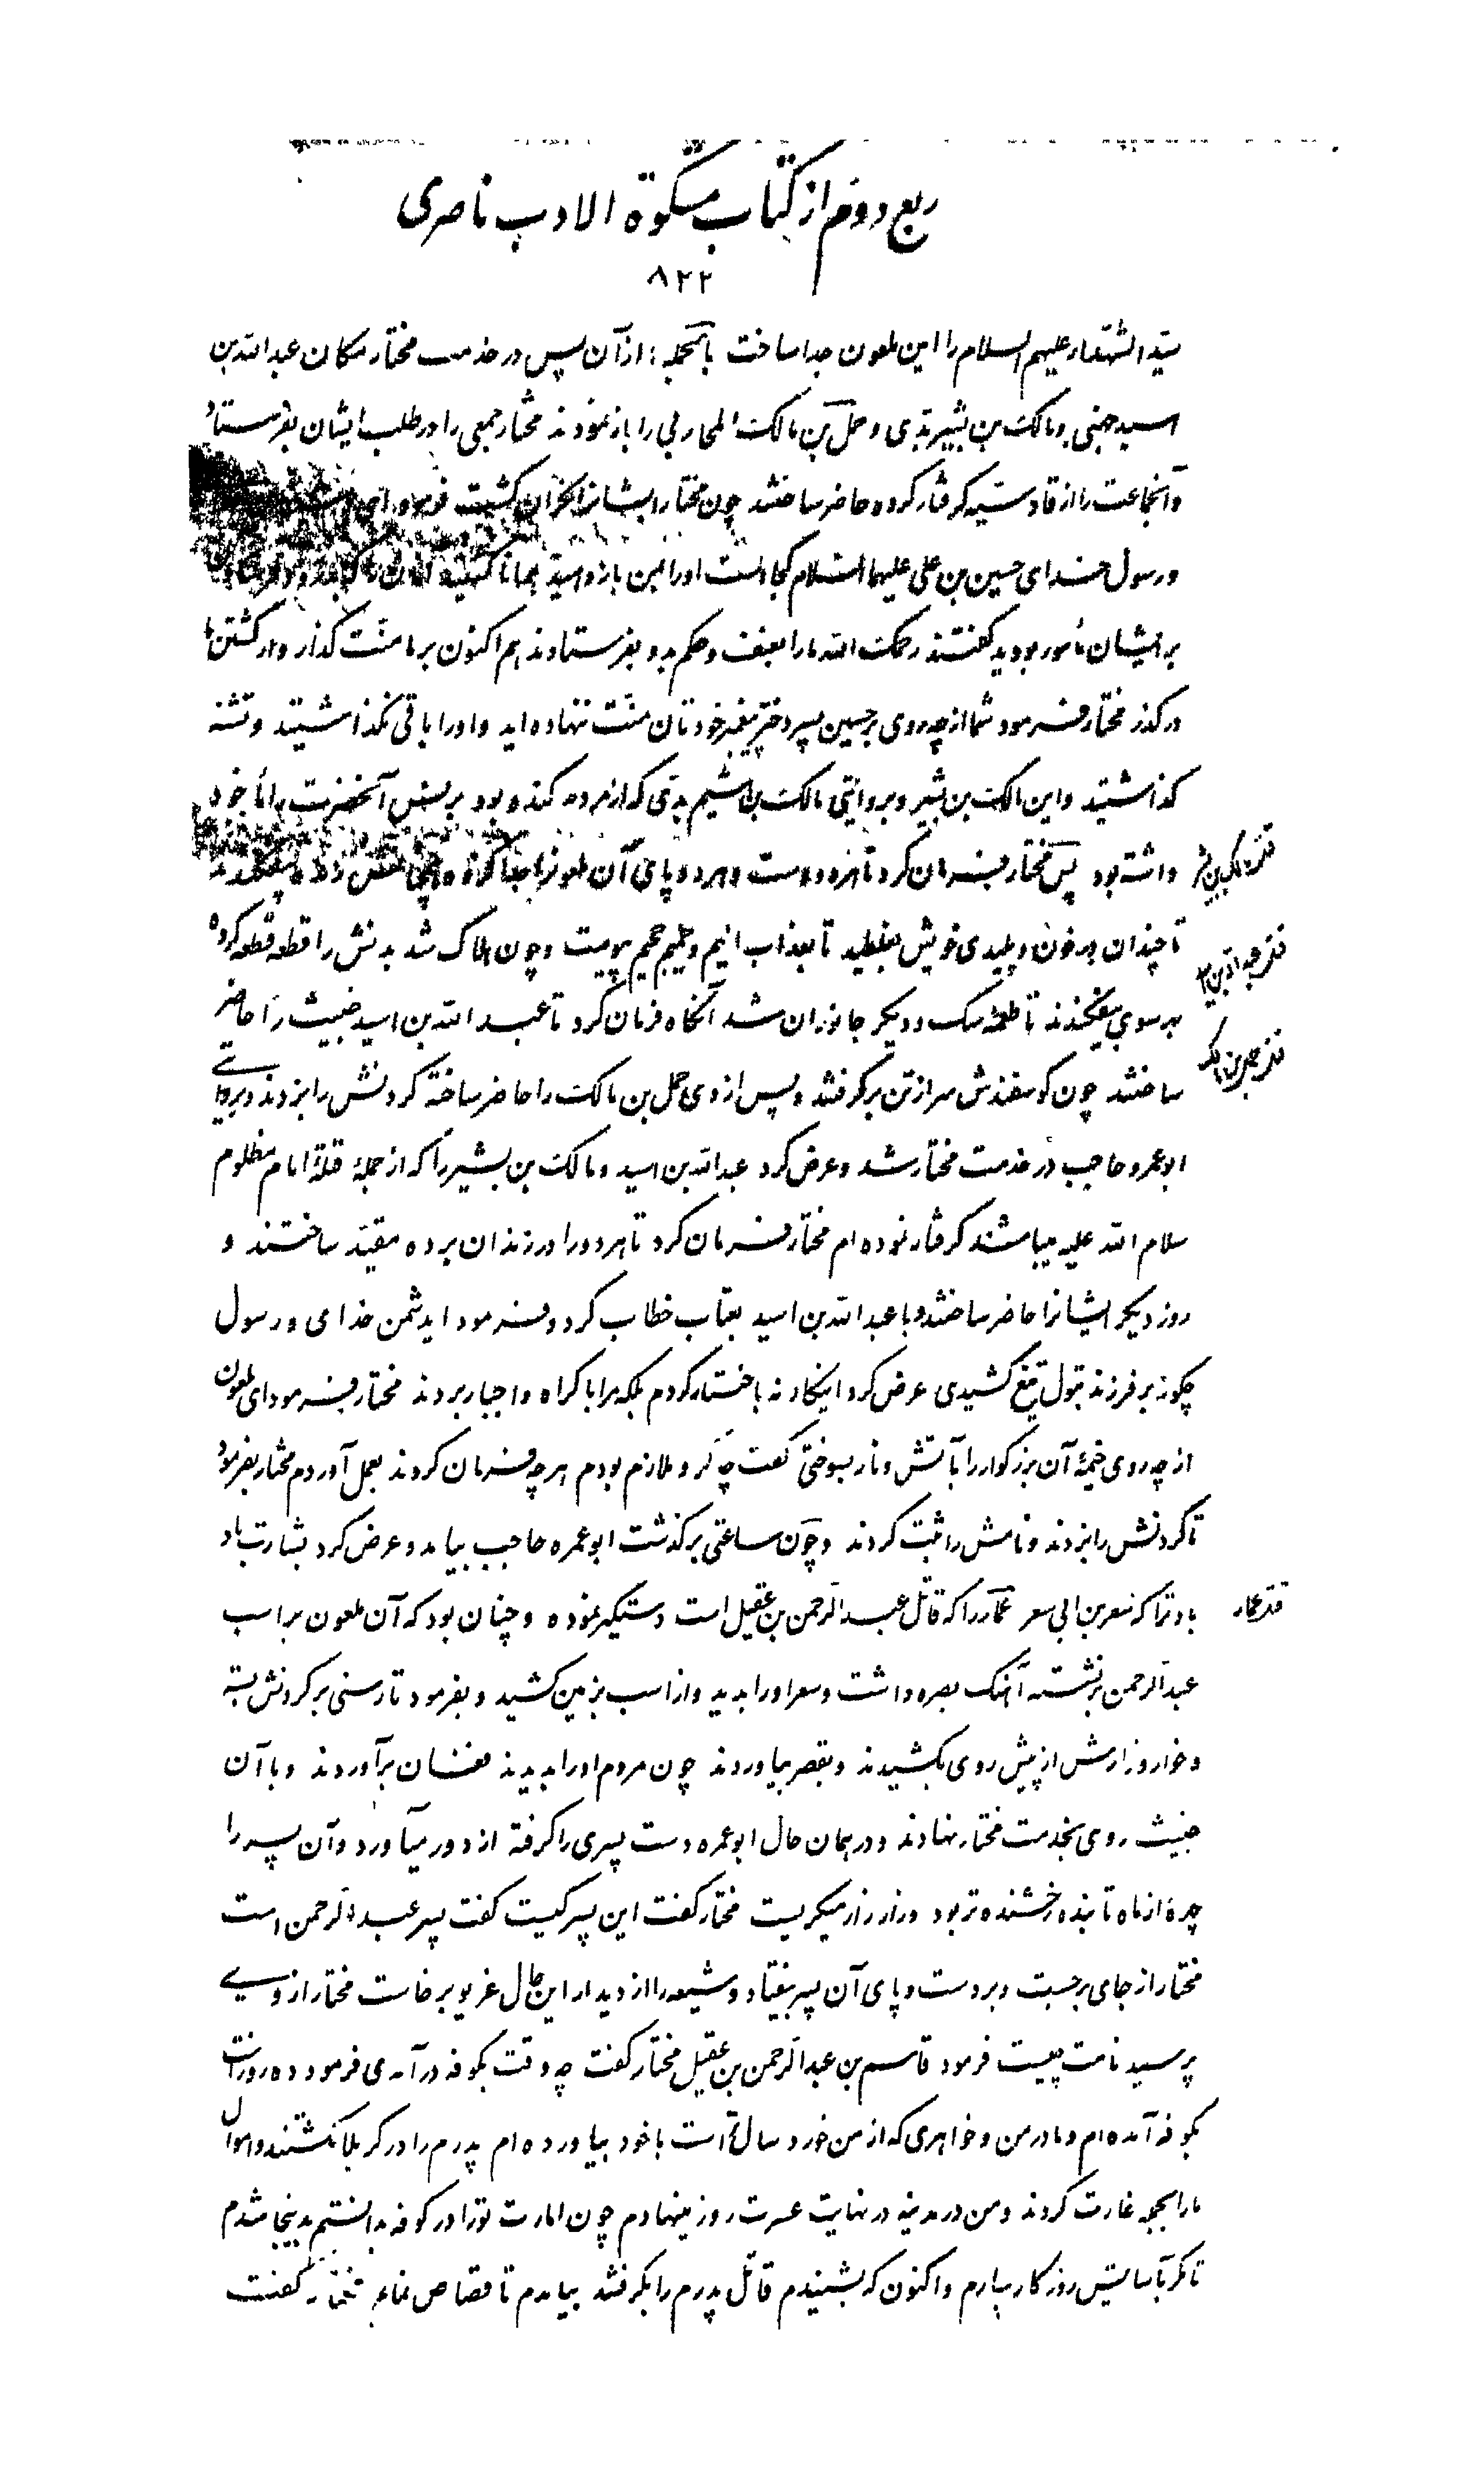 ربع دوم از کتاب مشکوة الادب ناصری
۸۲۲
سید الشهداء علیهم السلام را این ملعون جدا ساخت بالجمله : از آن پس در خدمت مختار مکان عبدالله بن
اسید جهنی و مالک بن بشیر بدّی و حمل بن مالک المحاربی را باز نمودند مختار جمعی را در طلب ایشان بفرستاد
و آنجماعت را از قادسیّه گرفتار کرده حاضر ساختند چون مختار ایشانرا نگران گشت فرمود ای
و رسول خدای حسین بن علی علیهما السلام کجا است او را بمن باز دهید همانا
بر ایشان مأمور بودید گفتند رحمک الله ما را بعنف و حکم بدو بفرستادند هم اکنون بر ما منّت گذار و از کشتن ما
در گذر مختار فرمود شما از چه روی بر حسین پسر دختر پیغمبر خودتان منّت ننهاده اید و او را باقی نگذاشتید و تشنه
گذاشتید و این مالک بن بشیر و بروایتی مالک بن هشیم بدّی که از مردم کنده بود برنس آنحضرت را مأخوذ
داشته بود پس مختار فرمان کرد تا هر دو دست و هر دو پای آن ملعونرا جدا کرده
تا چندان در خون و پلیدی خویش بغلطید تا بعذاب الیم و حمیم جحیم پیوست و چون هلاک شد بدنش را قطعه قطعه کرده
بهر سوی بیفکندند تا طعمه سگ و دیگر جانوران شد آنگاه فرمان کرد تا عبدالله بن اسید خبیث را حاضر
ساختند چون گوسفندش سر از تن برگرفتند و پس از وی حمل بن مالک را حاضر ساخته گردنش را بزدند و بروایتی
ابوعمرو حاجب در خدمت مختار شد و عرض کرد عبدالله بن اسید و مالک بن بشیر را که از جمله قتلۀ امام مظلوم
سلام الله علیه میباشند گرفتار نموده ام مختار فرمان کرد تا هر دو را در زندان برده مقیّد ساختند و
روز دیگر ایشانرا حاضر ساختند و با عبدالله بن اسید بعتاب خطاب کرد و فرمود ایدشمن خدای و رسول
چگونه بر فرزند بتول تیغ کشیدی عرض کرد اینکار نه باختیار کردم بلکه مرا باکراه و اجبار بردند مختار فرمود ای ملعون
از چه روی خیمۀ آن بزرگوار را بآتش و نار بسوختی گفت چاکر و ملازم بودم هر چه فرمان کردند بعمل آوردم مختار بفرمود
تا گردنش را بزدند و نامش را ثبت کردند و چون ساعتی برگذشت ابوعمره حاجب بیامد و عرض کرد بشارت باد
باد ترا که سعر بن ابی سعر عمّار را که قاتل عبدالرحمن بن عقیل است دستگیر نموده و چنان بود که آن ملعون بر اسب
عبدالرحمن بر نشسته آهنگ بصره داشت و سعر او را بدید و از اسب بزمین کشید و بفرمود تا رسنی بر گردنش بسته
و خوار و زارش از پیش روی بکشیدند و بقصر بیاوردند چون مردم او را بدیدند فغان برآوردند و با آن
خبیث روی بخدمت مختار نهادند و در همان حال ابوعمره دست پسری را گرفته از دور میآورد و آن پسر را
چهرۀ از ماه تابنده رخشنده تر بود و زار زار میگریست مختار گفت این پسر کیست گفت پسر عبدالرحمن است
مختار از جای برجست و بر دست و پای آن پسر بیفتاد و شیعه را از دیدار این حال غریو برخاست مختار از وی
پرسید نامت چیست فرمود قاسم بن عبدالرحمن بن عقیل مختار گفت چه وقت بکوفه در آمدی فرمود ده روز است
بکوفه آمده ام و مادر من و خواهری که از من خورد سال تر است با خود بیاورده ام پدرم را در کربلا بکشتند و اموال
ما را بجمله غارت کردند و من در مدینه در نهایت عسرت روز مینهادم چون امارت تو را در کوفه بدانستم بدینجا شدم
تا مگر بآسایش روزگار سپارم و اکنون که بشنیدم قاتل پدرم را بگرفتند بیامدم تا قصاص نمایم مختار گفت
قتل مالک بن بشیر
قتل عبدالله بن اسید
قتل حمل بن مالک
قتل عمّار